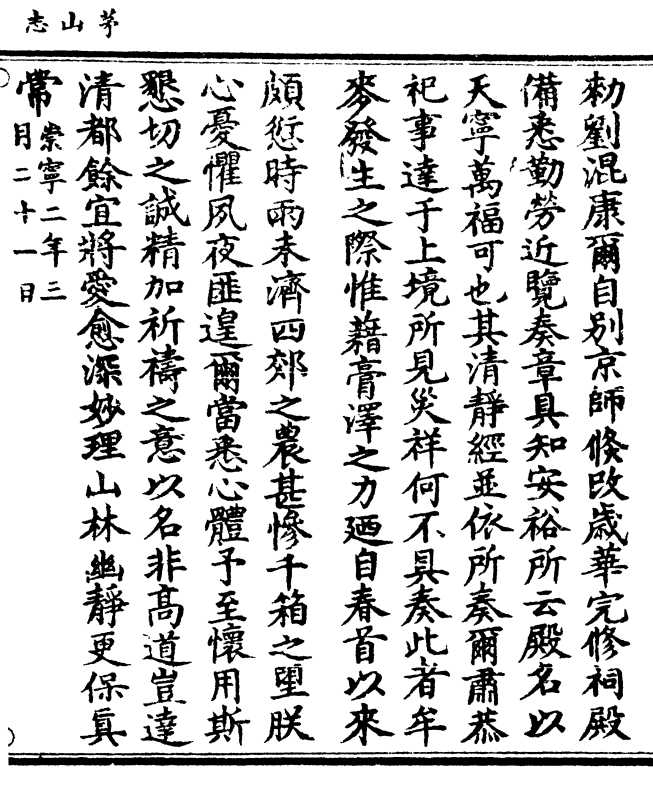 茅山志
勑劉混康爾自別京師倏改歲華完修祠殿
備悉勤勞近覽奏章具知安裕所云殿名以
天寧萬福可也其清靜經並依所奏爾肅恭
祀事達于上境所見災祥何不具奏此者牟
麥發生之際惟藉膏澤之力廼自春首以來
頗愆時雨未濟四郊之農甚慘千箱之望朕
心憂懼夙夜匪遑爾當悉心體予至懷用斯
懇切之誠精加祈禱之意以名非高道豈達
清都餘宜將愛愈深妙理山林幽靜更保眞
常
崇寧二年三
月二十一日